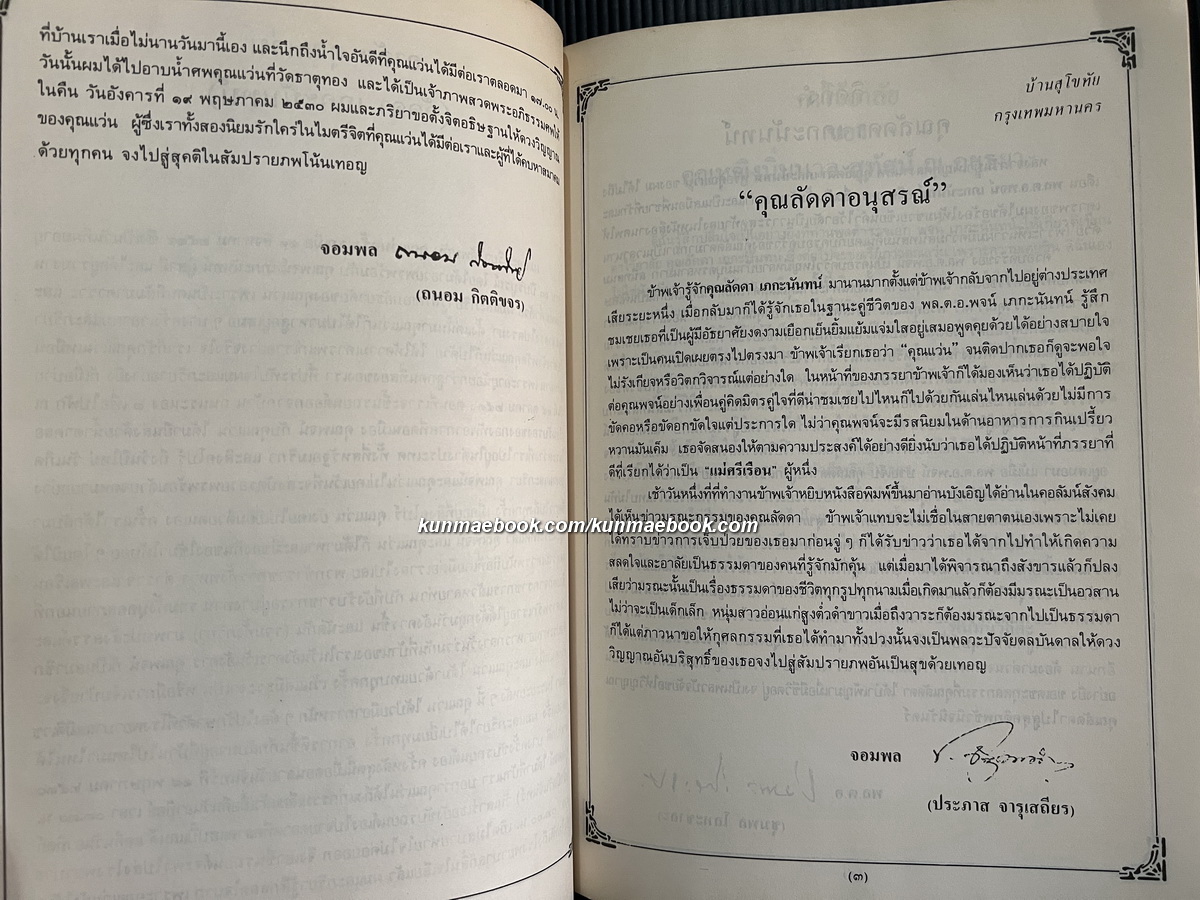 ที่บ้านเราเมื่อไม่นานวันมานี้เอง และนึกถึงน้ำใจอันดีที่คุณแว่นได้มีต่อเราตลอดมา ๑๗.๐๐ น.
วันนั้นผมได้ไปอาบน้ำศพคุณแว่นที่วัดธาตุทอง และได้เป็นเจ้าภาพสวดพระอภิธรรมศพให้
ในคืน วันอังคารที่ ๑๙ พฤษภาคม ๒๕๓๐ ผมและภริยาขอตั้งจิตอธิษฐานให้ดวงวิญญาณ
ของคุณแว่น ผู้ซึ่งเราทั้งสองนิยมรักใคร่ในไมตรีจิตที่คุณแว่นได้มีต่อเราและผู้ที่ได้คบหาสมาคม
ด้วยทุกคน จงไปสู่สุคติในสัมปรายภพโน้นเทอญ
จอมพล
(ถนอม กิตติขจร)
บ้านสุโขทัย
กรุงเทพมหานคร
“คุณลัดดาอนุสรณ์”
ข้าพเจ้ารู้จักคุณลัดดา เภกะนันทน์ มานานมากตั้งแต่ข้าพเจ้ากลับจากไปอยู่ต่างประเทศ
เสียระยะหนึ่ง เมื่อกลับมาก็ได้รู้จักเธอในฐานะคู่ชีวิตของ พล.ต.อ.พจน์ เภกะนันทน์ รู้สึก
ชมเชยเธอที่เป็นผู้มีอัธยาศัยงดงามเยือกเย็นยิ้มแย้มแจ่มใสอยู่เสมอพูดคุยด้วยได้อย่างสบายใจ
เพราะเป็นคนเปิดเผยตรงไปตรงมา ข้าพเจ้าเรียกเธอว่า “คุณแว่น” จนติดปากเธอก็ดูจะพอใจ
ไม่รังเกียจหรือวิตกวิจารณ์แต่อย่างใด ในหน้าที่ของภรรยาข้าพเจ้าก็ได้มองเห็นว่าเธอได้ปฏิบัติ
ต่อคุณพจน์อย่างเพื่อนคู่คิดมิตรคู่ใจที่ดีน่าชมเชยไปไหนก็ไปด้วยกันเล่นไหนเล่นด้วยไม่มีการ
ขัดคอหรือขัดอกขัดใจแต่ประการใด ไม่ว่าคุณพจน์จะมีรสนิยมในด้านอาหารการกินเปรี้ยว
หวานมันเค็ม เธอจัดสนองให้ตามความประสงค์ได้อย่างดียิ่งนับว่าเธอได้ปฏิบัติหน้าที่ภรรยาที่
ดีที่เรียกได้ว่าเป็น “แม่ศรีเรือน” ผู้หนึ่ง
เช้าวันหนึ่งที่ที่ทำงานข้าพเจ้าหยิบหนังสือพิมพ์ขึ้นมาอ่านบังเอิญได้อ่านในคอลัมน์สังคม
ได้เห็นข่าวมรณะกรรมของคุณลัดดา ข้าพเจ้าแทบจะไม่เชื่อในสายตาตนเองเพราะไม่เคย
kunmaebook.com/kunmaebook.com
ได้ทราบข่าวการเจ็บป่วยของเธอมาก่อนจู่ ๆ ก็ได้รับข่าวว่าเธอได้จากไปทำให้เกิดความ
สลดใจและอาลัยเป็นธรรมดาของคนที่รู้จักมักคุ้น แต่เมื่อมาได้พิจารณาถึงสังขารแล้วก็ปลง
เสียว่ามรณะนั้นเป็นเรื่องธรรมดาของชีวิตทุกรูปทุกนามเมื่อเกิดมาแล้วก็ต้องมีมรณะเป็นอวสาน
ไม่ว่าจะเป็นเด็กเล็ก หนุ่มสาวอ่อนแก่สูงต่ำดำขาวเมื่อถึงวาระก็ต้องมรณะจากไปเป็นธรรมดา
ก็ได้แต่ภาวนาขอให้กุศลกรรมที่เธอได้ทำมาทั้งปวงนั้นจงเป็นพลวะปัจจัยดลบันดาลให้ดวง
วิญญาณอันบริสุทธิ์ของเธอจงไปสู่สัมปรายภพอันเป็นสุขด้วยเทอญ
จอมพล
(ประภาส จารุเสถียร)
(๓)